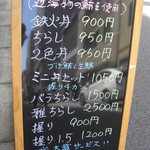 (近海物の鮪を使用)
鉄火丼 900円
ちらし 950円
2色丼 950円
づけ鮪と生鮪
ミニ丼セット1050円
バラちらし1500円
雅ちらし2500円
握り 900円
握り15 1200円
大盛サービス!!